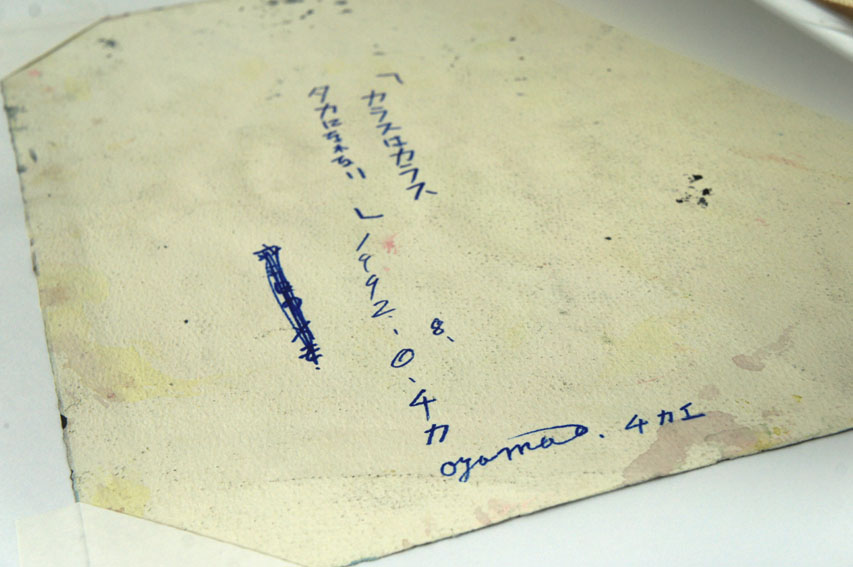 「カラスはカラス
タカになれない」1992.O.チカ
8.
oyama.チカエ